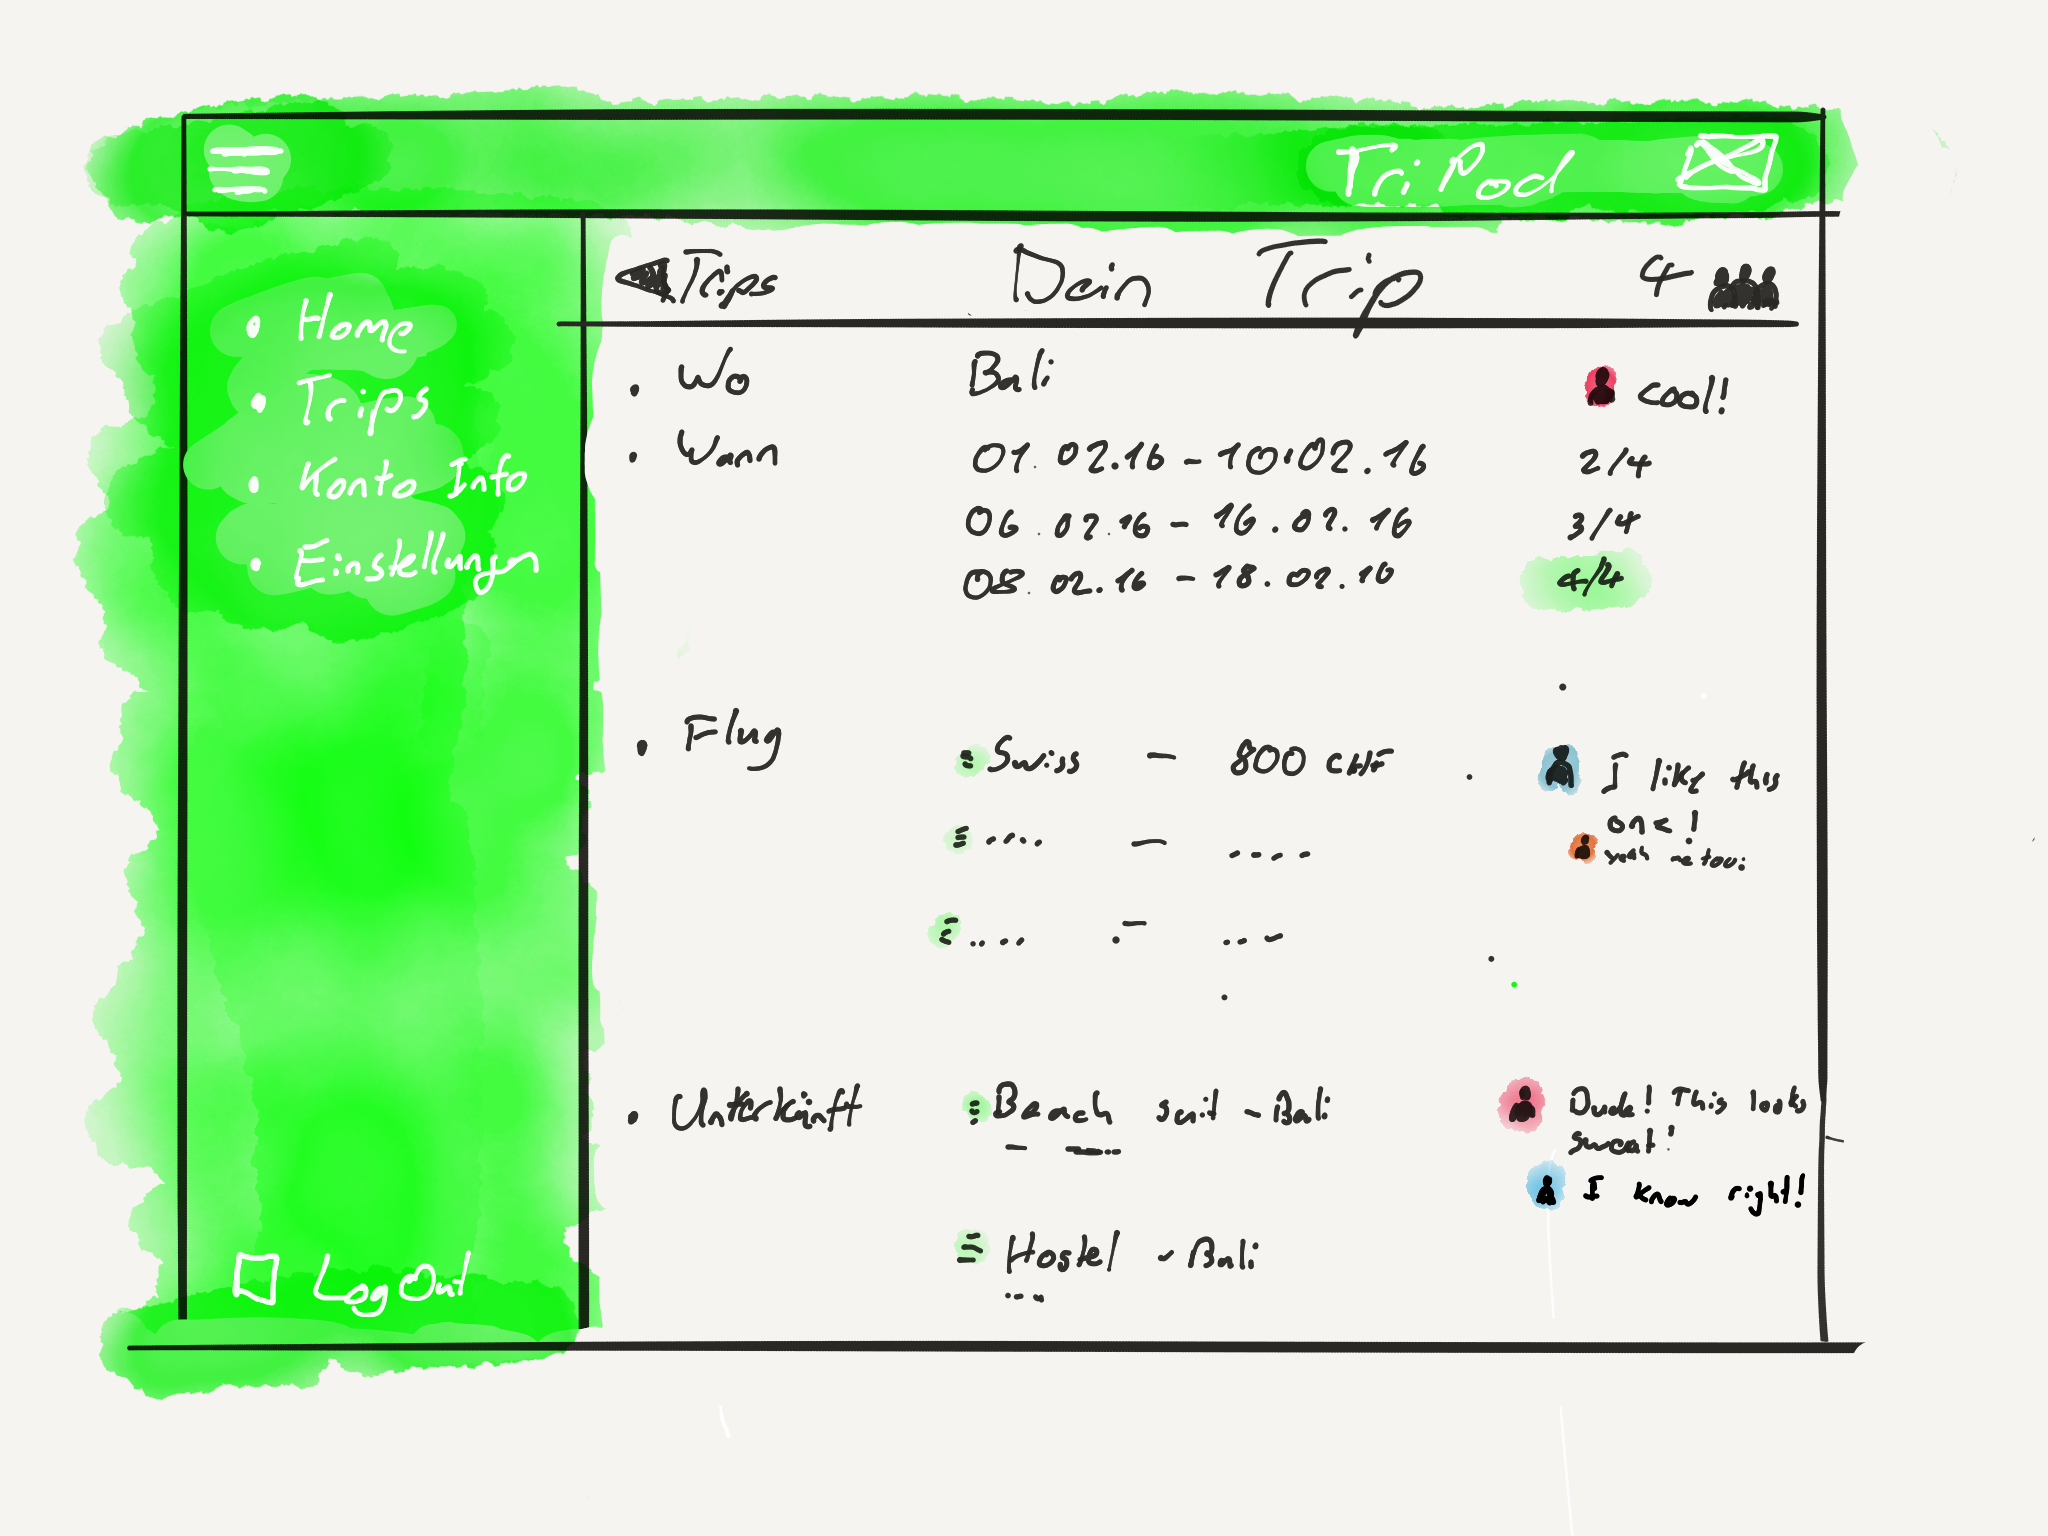 TriPod
Home
Trips
Konto Info
Einstellungen
LogOut
Trips Dein Trip 4
Wo Bali cool!
Wann 01.02.16 - 10.02.16 2/4
06.02.16 - 16.02.16 3/4
08.02.16 - 18.02.16 4/4
Flug Swiss - 800 CHF I like this
one!
yeah me too!
.... - ....
.... - ....
Unterkünft Beach suit - Bali Dude! This looks
sweat!
I know right!
Hostel - Bali
...